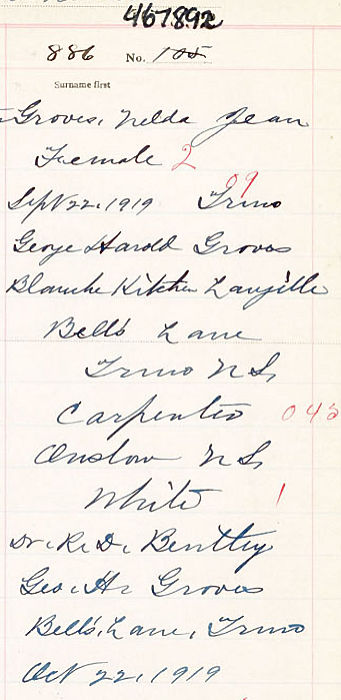 467892
886 No. 105
Surname first
Groves, Nelda Jean
Female 2
09
Sept 22, 1919 Truro
George Harold Groves
Blanche Kitchen Langille
Bell's Lane
Truro N.S.
Carpenter 045
Onslow N.S.
White 1
Dr. R. D. Bentley
Geo. H. Groves
Bell's Lane, Truro
Oct 22, 1919